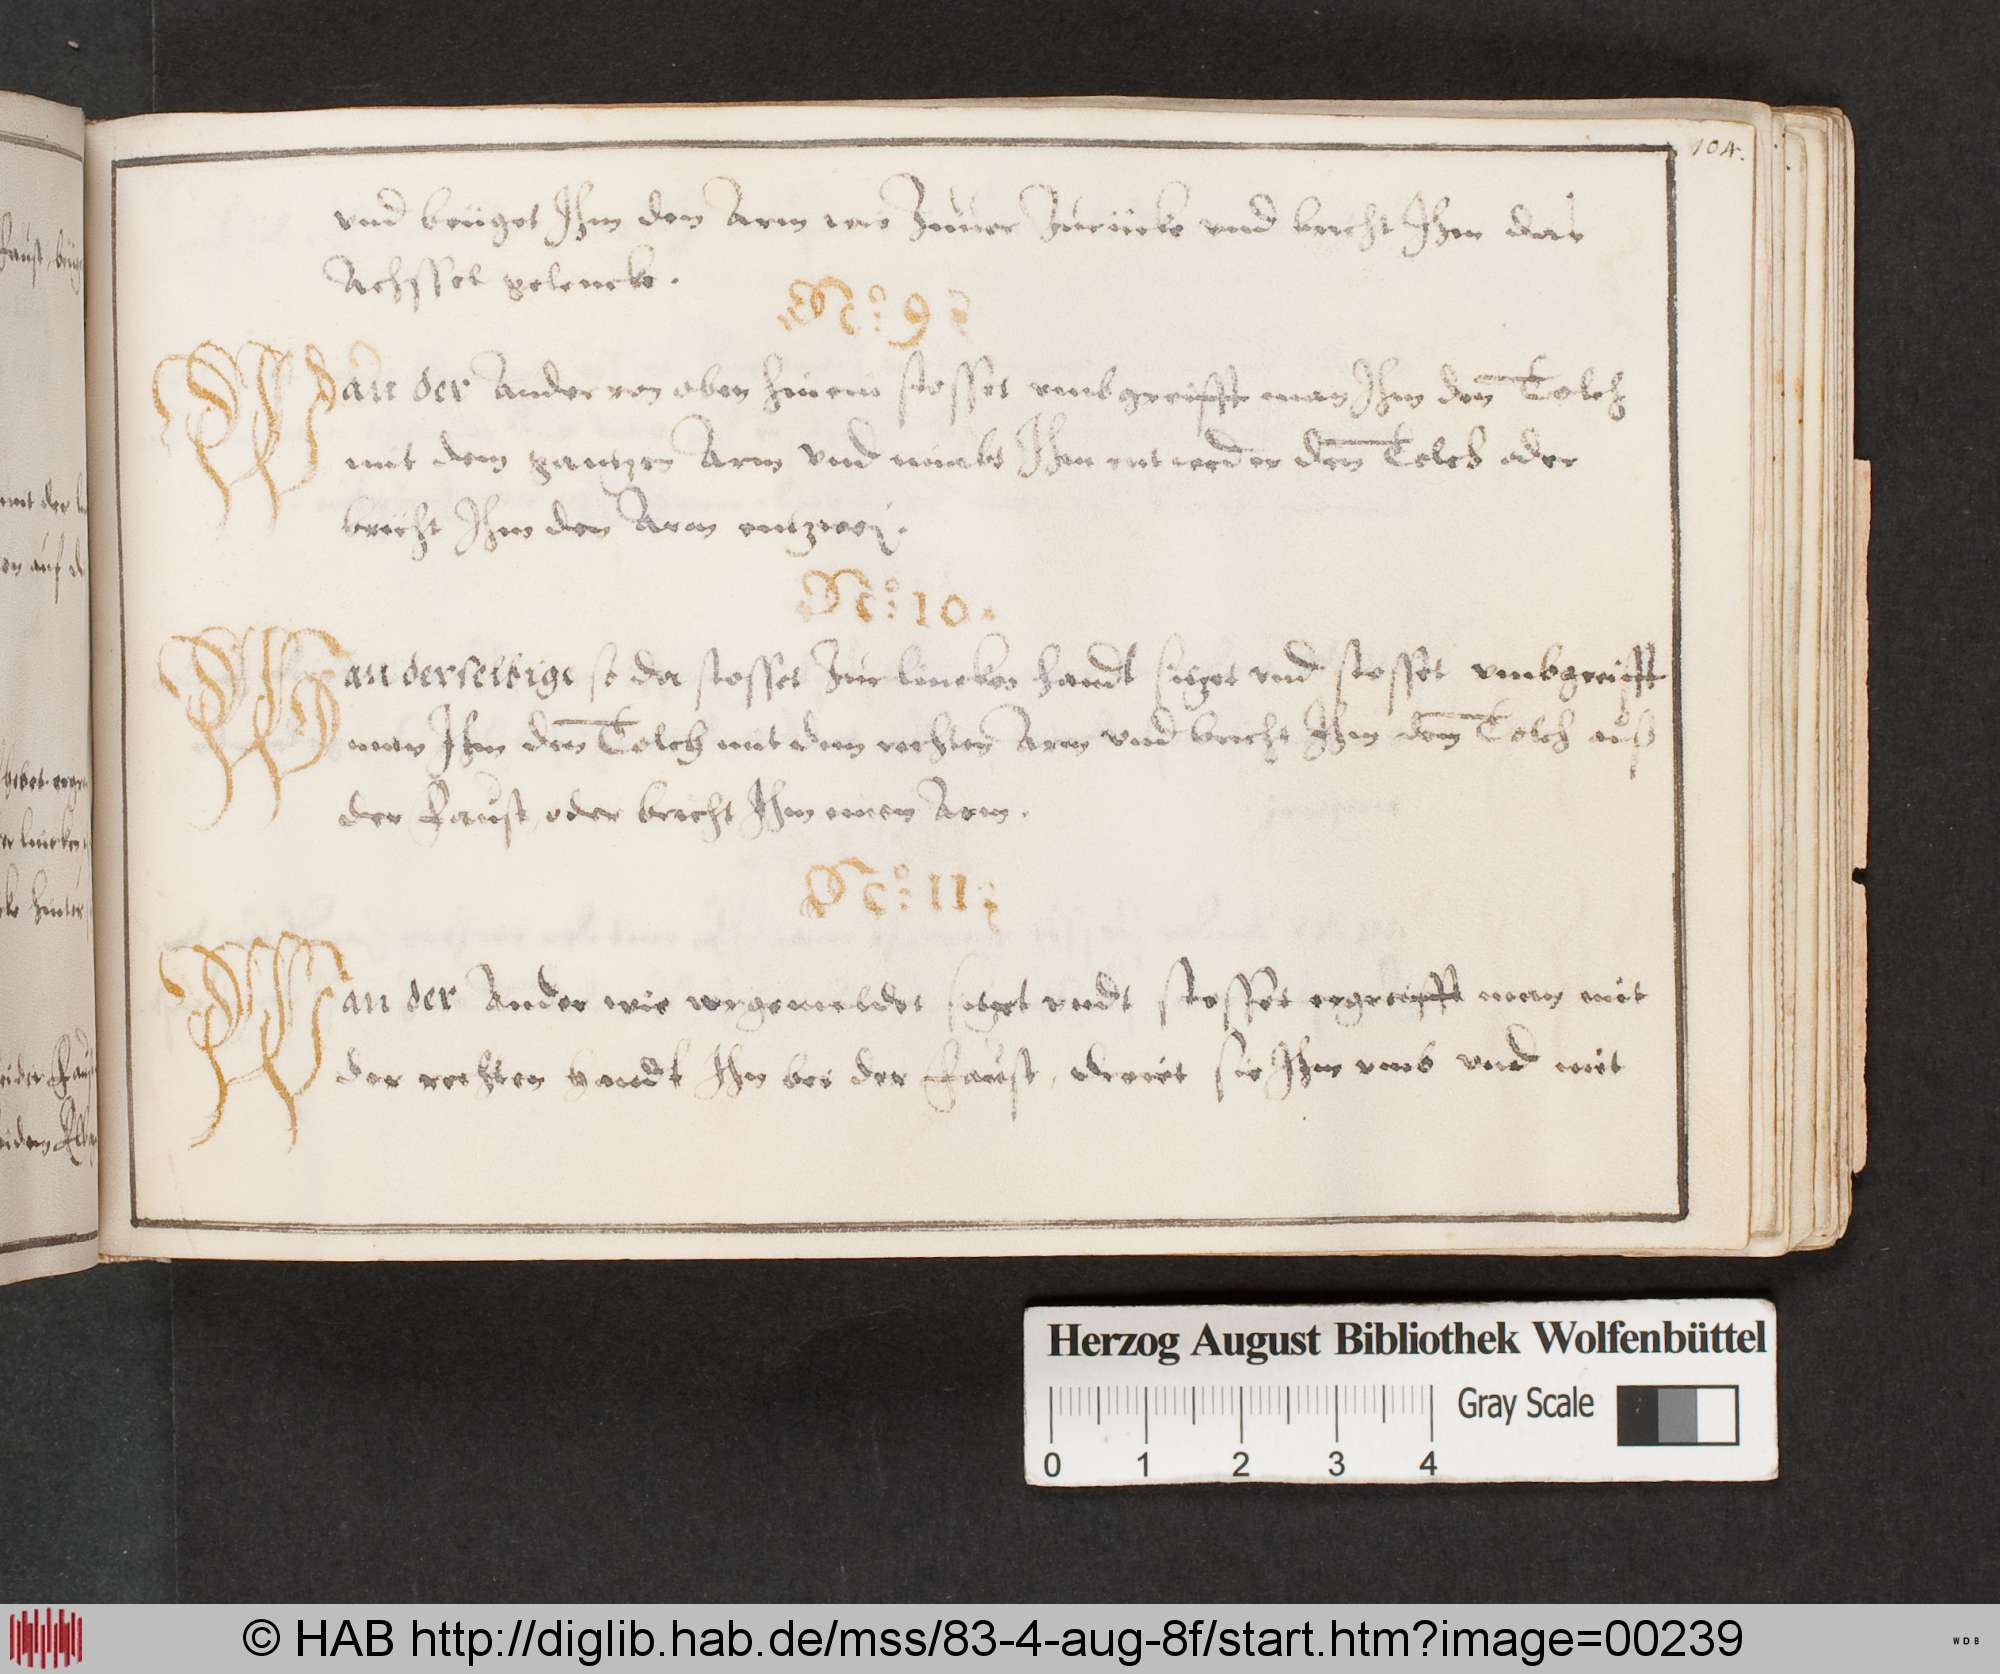 104.
vnd beüget Ihm den Arm wie Zuuor Zurücke vnd bricht Ihm das
Achssel gelencke.
No: 9
Wan der Ander von oben hinein stosset vmbgreifft man Ihm den Tolch
mit dem gantzen Arm vnd nimbt Ihm entweder den Tolch oder
bricht Ihm den Arm entzwei.
No: 10.
Wan derselbige so da stosset Zur lincken handt lieget vnd stosset vmbgreifft
man Ihm den Tolch mit dem rechten Arm vnd bricht Ihm den Tolch auß
der Faust, oder bricht Ihm einen Arm.
No: 11
Wan der Ander wie vorgemeldet lieget vndt stosset ergreifft man mit
der rechten Handt Ihn bei der Faust, dreiet sie Ihm vmb vnd mit
Faust
auf
hinter
Herzog August Bibliothek Wolfenbüttel
Gray Scale
0 1 2 3 4
© HAB http://diglib.hab.de/mss/83-4-aug-8f/start.htm?image=00239
WDB